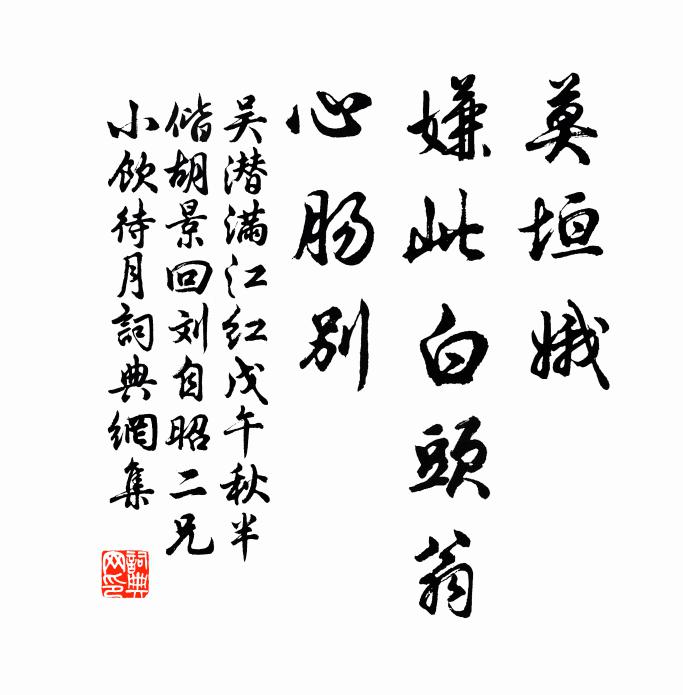 莫垣娥
嫌此白頭翁
心肠别
吴潜满江红戊午秋半
偕胡景回刘自昭二兄
小饮待月詞典網集
詞典
网印